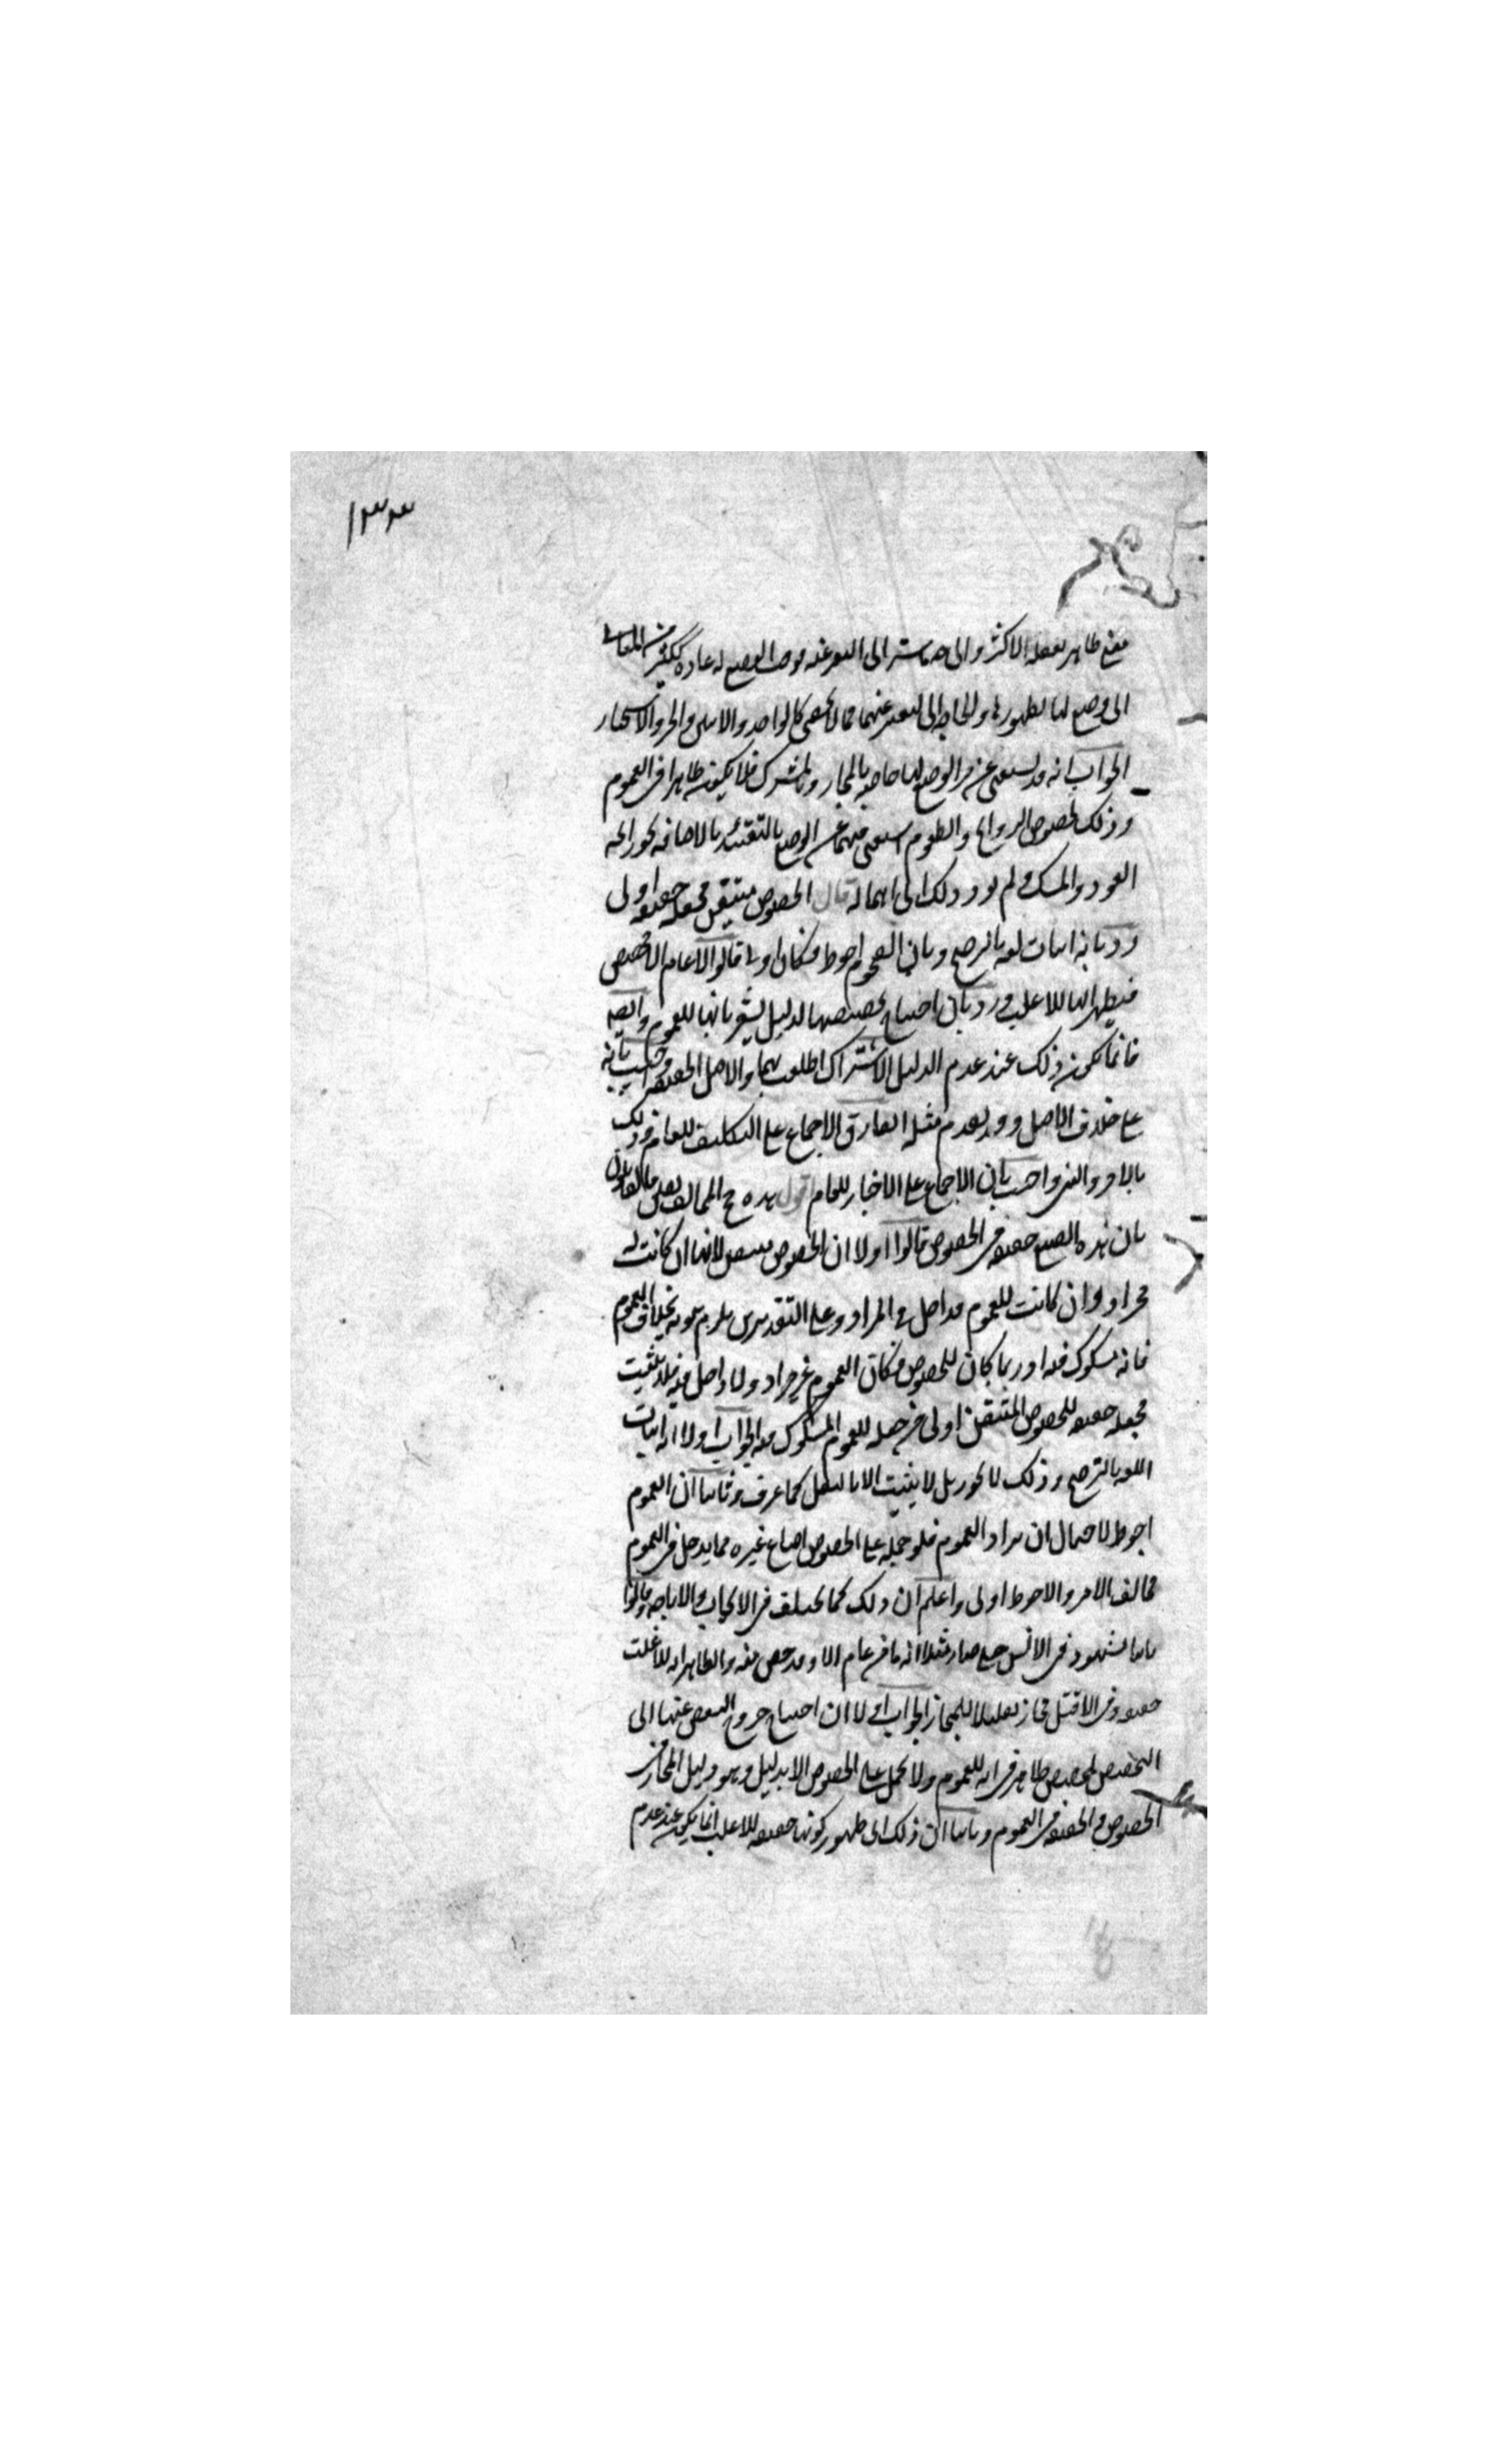 ١٣٣
معنى ظاهر يعقله الاكثر والى هما سترالى التعبير عنه فوجب الوضع له عادة ككثير من المعاني
الى وضع لها لظهورها والحاجة الى التعبير عنهما مما لا يحصى كالواحد والاثنين والخبر والاستخبار
الجواب انه قد يستغنى عن الوضع لها خاصة بالمجاز وبالمشترك فلا يكون ظاهرا في العموم
وذلك لخصوص الروائح والطعوم استغنى فيهما عن الوضع بالتقييد بالاضافة نحو رائحة
العود والمسك ولم يؤد ذلك الى اهماله قال الخصوص متيقن فجعله حقيقة اولى
ورد بانه اثبات لغة بالترجيح وبان العموم احوط فكان اولى قالوا لا عام الا مخصص
فيظهر انها للاغلب ورد بان احتياج تخصيصها لدليل يشعر بانها للعموم وايضا
فانما يكون ذلك عند عدم الدليل الاشتراك اطلقت لهما والاصل الحقيقة واجيب بانه
على خلاف الاصل وقد تقدم مثله الفارق الاجماع على التكليف للعام وذلك
بالامر والنهي واجيب بان الاجماع على الاخبار للعام اقول هذه حجج المخالف القائلون
بان هذه الصيغ حقيقة في الخصوص قالوا اولا ان الخصوص متيقن لانها ان كانت له
فمراد وان كانت للعموم فداخل في المراد وعلى التقديرين يلزم ثبوته بخلاف العموم
فانه مشكوك فيه اذ ربما كان للخصوص فكان العموم غير مراد ولا داخل فيه فلا يثبت
فجعله حقيقة للخصوص المتيقن اولى من جعله للعموم المشكوك فيه الجواب اولا انه اثبات
اللغة بالترجيح وذلك لا يجوز بل لا يثبت الا بالنقل كما عرف وثانيا ان العموم
احوط لاحتمال ان يراد العموم فلو حمله على الخصوص اضاع غيره مما يدخل في العموم
فخالف الامر والاحوط اولى واعلم ان ذلك كما يختلف في الايجاب والاباحة وقالوا
ثانيا اشتهر في الالسن حتى صار مثلا انه ما من عام الا وقد خص منه والظاهر انه للاغلب
حقيقة وفي الاقل مجاز تقليلا للمجاز الجواب اولا ان احتياج خروج البعض عنها الى
التخصيص بمخصص ظاهر في انه للعموم ولا يحمل على الخصوص الا بدليل وهو دليل المجاز في
الخصوص والحقيقة في العموم وثانيا ان ذلك اى ظهور كونها حقيقة للاغلب انما يكون عند عدم